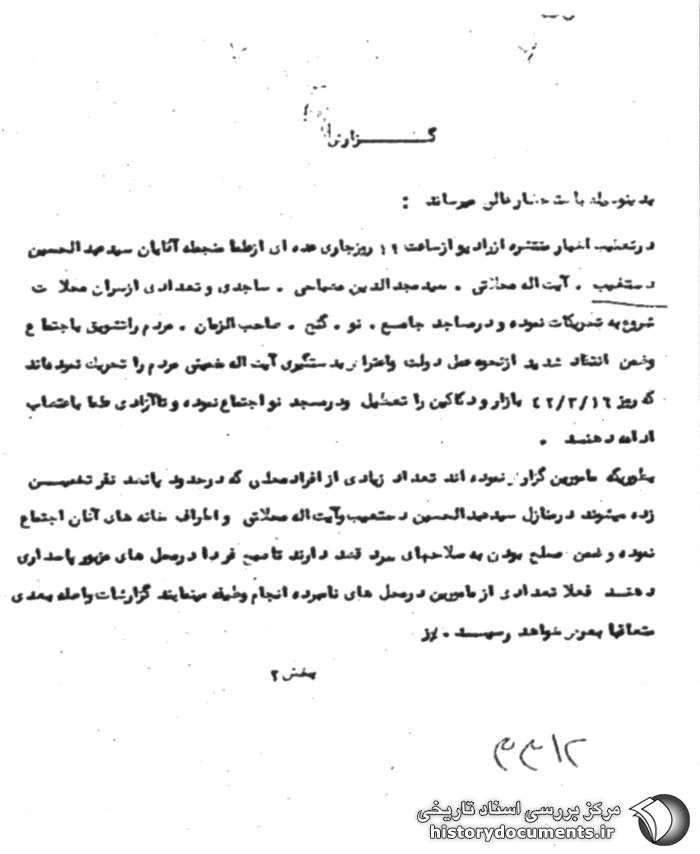 گزارش
بدینوسیله باستحضار عالی میرساند :
در تعقیب اخبار منتشره از رادیو از ساعت ۱۹ روز جاری عده ای از علما منجمله آقایان سید عبدالحسین
دستغیب . آیت اله محلاتی . سید مجدالدین مصباحی . ساجدی و تعدادی از سران محلات
شروع به تحریکات نموده و در مساجد جامع . نو . گنج . صاحب الزمان . مردم را تشویق باجتماع
وضمن انتقاد شدید از نحوه عمل دولت واعتراض بدستگیری آیت اله خمینی مردم را تحریک نموده‌اند
که روز ۴۲/۳/۱۶ بازار و دکاکین را تعطیل ودر مسجد نو اجتماع نموده و تا آزادی علما باعتصاب
ادامه دهند .
بطوریکه مامورین گزارش نموده اند تعداد زیادی از افراد محلی که در حدود پانصد نفر تخمین
زده میشوند در منازل سید عبدالحسین دستغیب وآیت اله محلاتی و اطراف خانه های آنان اجتماع
نموده و ضمن مسلح بودن به سلاحهای سرد قصد دارند تا صبح فردا در محل های مزبور پاسداری
دهند فعلا تعدادی از مامورین در محل های نامبرده انجام وظیفه مینمایند گزارشات واصله بعدی
متعاقبا بعرض خواهد رسید .
بخش ۲
مرکز بررسی اسناد تاریخی
historydocuments.ir